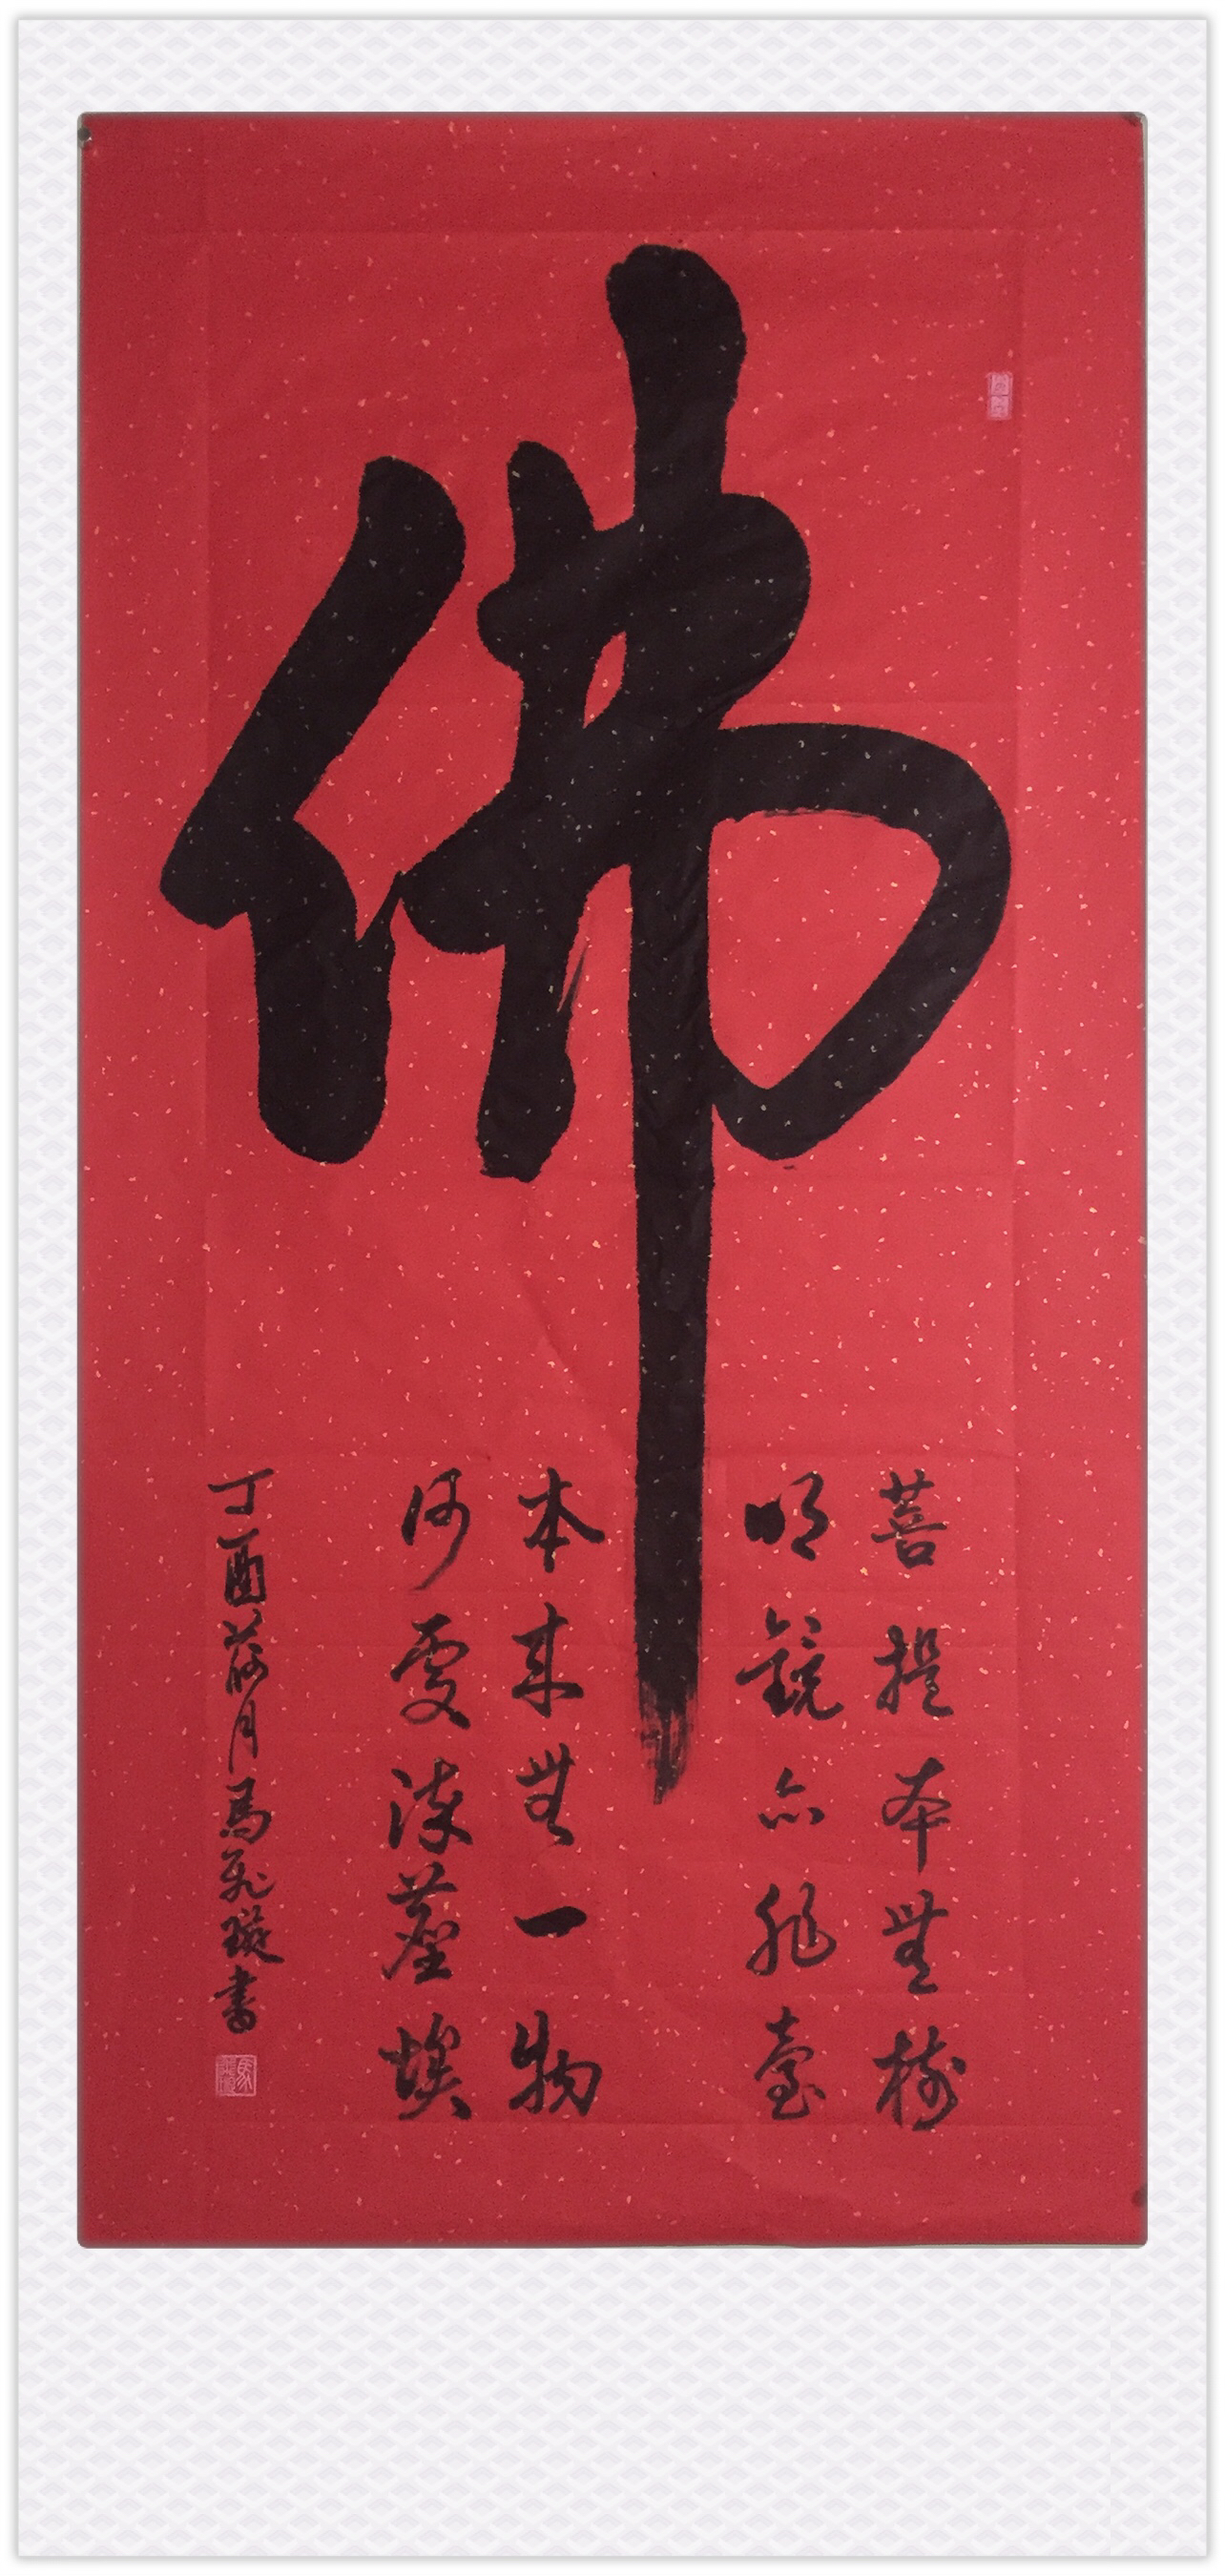 佛
菩提本無樹
明鏡亦非臺
本来無一物
何處染塵埃
丁酉荷月馬飛璇書